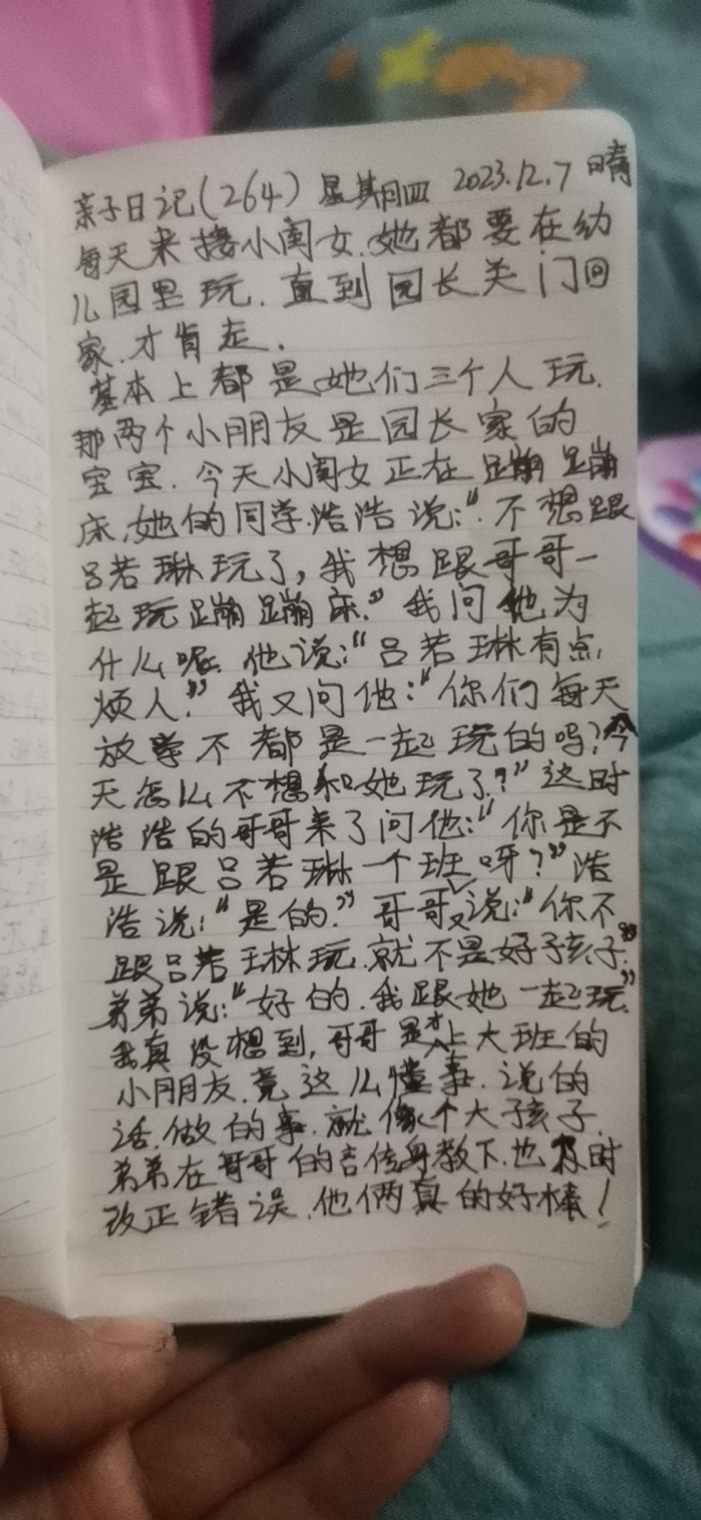 亲子日记(264) 星期四 2023.12.7 晴
每天来接小闺女.她都要在幼
儿园里玩.直到园长关门回
家.才肯走.
基本上都是她们三个人玩.
那两个小朋友是园长家的
宝宝.今天小闺女正在蹦蹦
床,她的同学浩浩说:“不想跟
吕若琳玩了,我想跟哥哥一
起玩蹦蹦床.”我问他为
什么呢.他说:“吕若琳有点
烦人.”我又问他:“你们每天
放学不都是一起玩的吗?今
天怎么不想和她玩了?”这时
浩浩的哥哥来了问他:“你是不
是跟吕若琳一个班呀?”浩
浩说:“是的.”哥哥又说:“你不
跟吕若琳玩.就不是好孩子.”
弟弟说:“好的.我跟她一起玩.”
我真没想到,哥哥是才上大班的
小朋友.竟这么懂事.说的
话.做的事.就像个大孩子.
弟弟在哥哥的言传身教下.也及时
改正错误.他俩真的好棒!